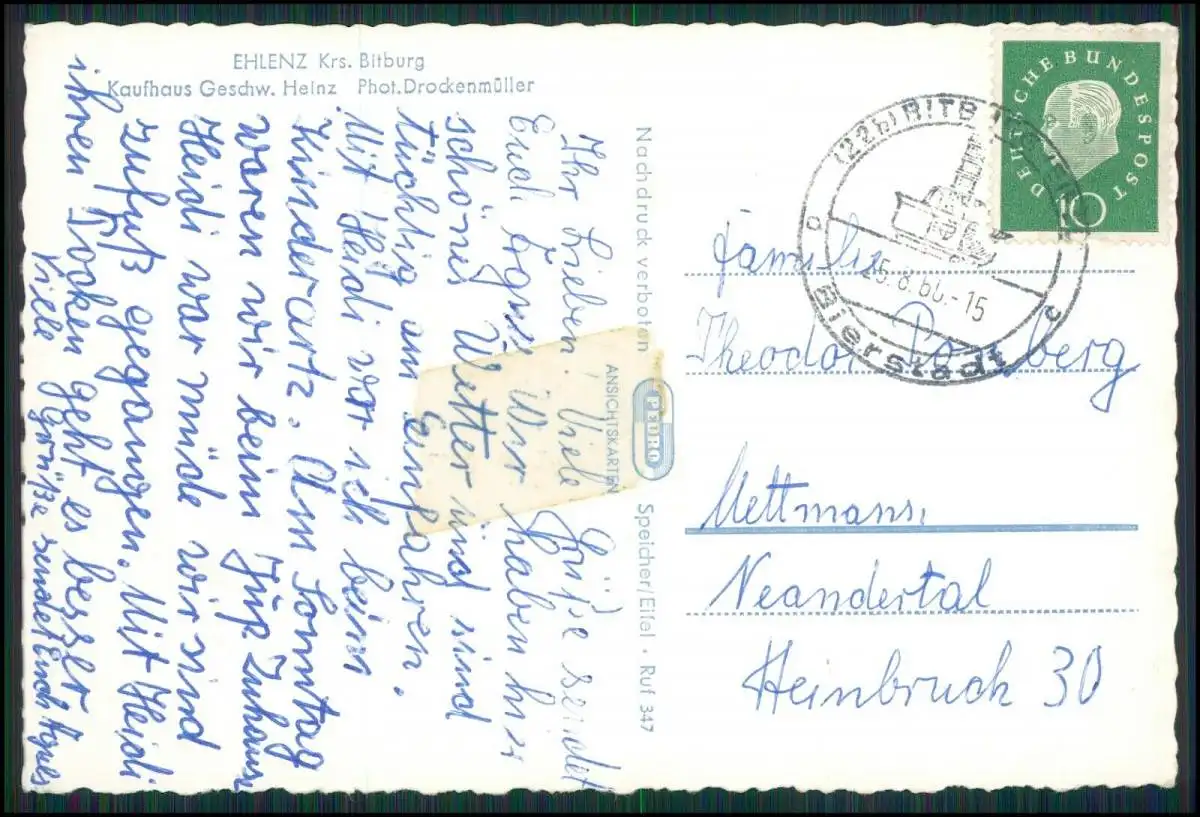 EHLENZ Krs. Bitburg
Kaufhaus Geschw. Heinz Phot. Drockenmüller
Ihr Lieben. Viele Grüße sendet
Euch Agnes. Wir haben hier
schönes Wetter und sind
tüchtig am Einfahren.
Mit Heidi war ich beim
Kinderarzt. Am Sonntag
waren wir beim Jüp Zuhause
Heidi war müde wir sind
zufuß gegangen. Mit Heidi
ihren Pocken geht es besser
Viele Grüße sendet Euch Agnes
Nachdruck verboten
PEDRO
ANSICHTSKARTEN
Speicher/Eifel · Ruf 347
DEUTSCHE BUNDESPOST
10
(22b) BITBURG
25.8.60.-15
c c
Bierstadt
Familie
Theodor
Mettmann,
Neandertal
Heinbruch 30